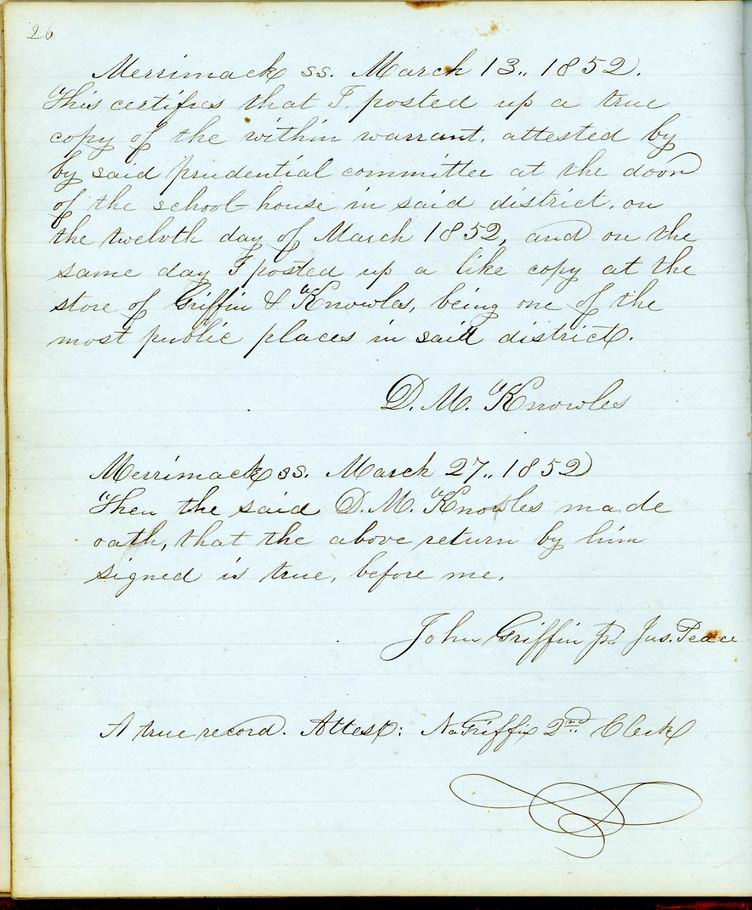 26
Merrimack ss. March 13.. 1852.
This certifies that I posted up a true
copy of the within warrant, attested by
by said prudential committee at the door
of the school-house in said district, on
the twelvth day of March 1852, and on the
same day I posted up a like copy at the
store of Griffin & Knowles, being one of the
most public places in said district.
D. M. Knowles
Merrimack ss. March 27.. 1852
Then the said D. M. Knowles made
oath, that the above return by him
signed is true, before me.
John Griffin jr. Jus. Peace
A true record. Attest: N. Griffin 2nd Clerk